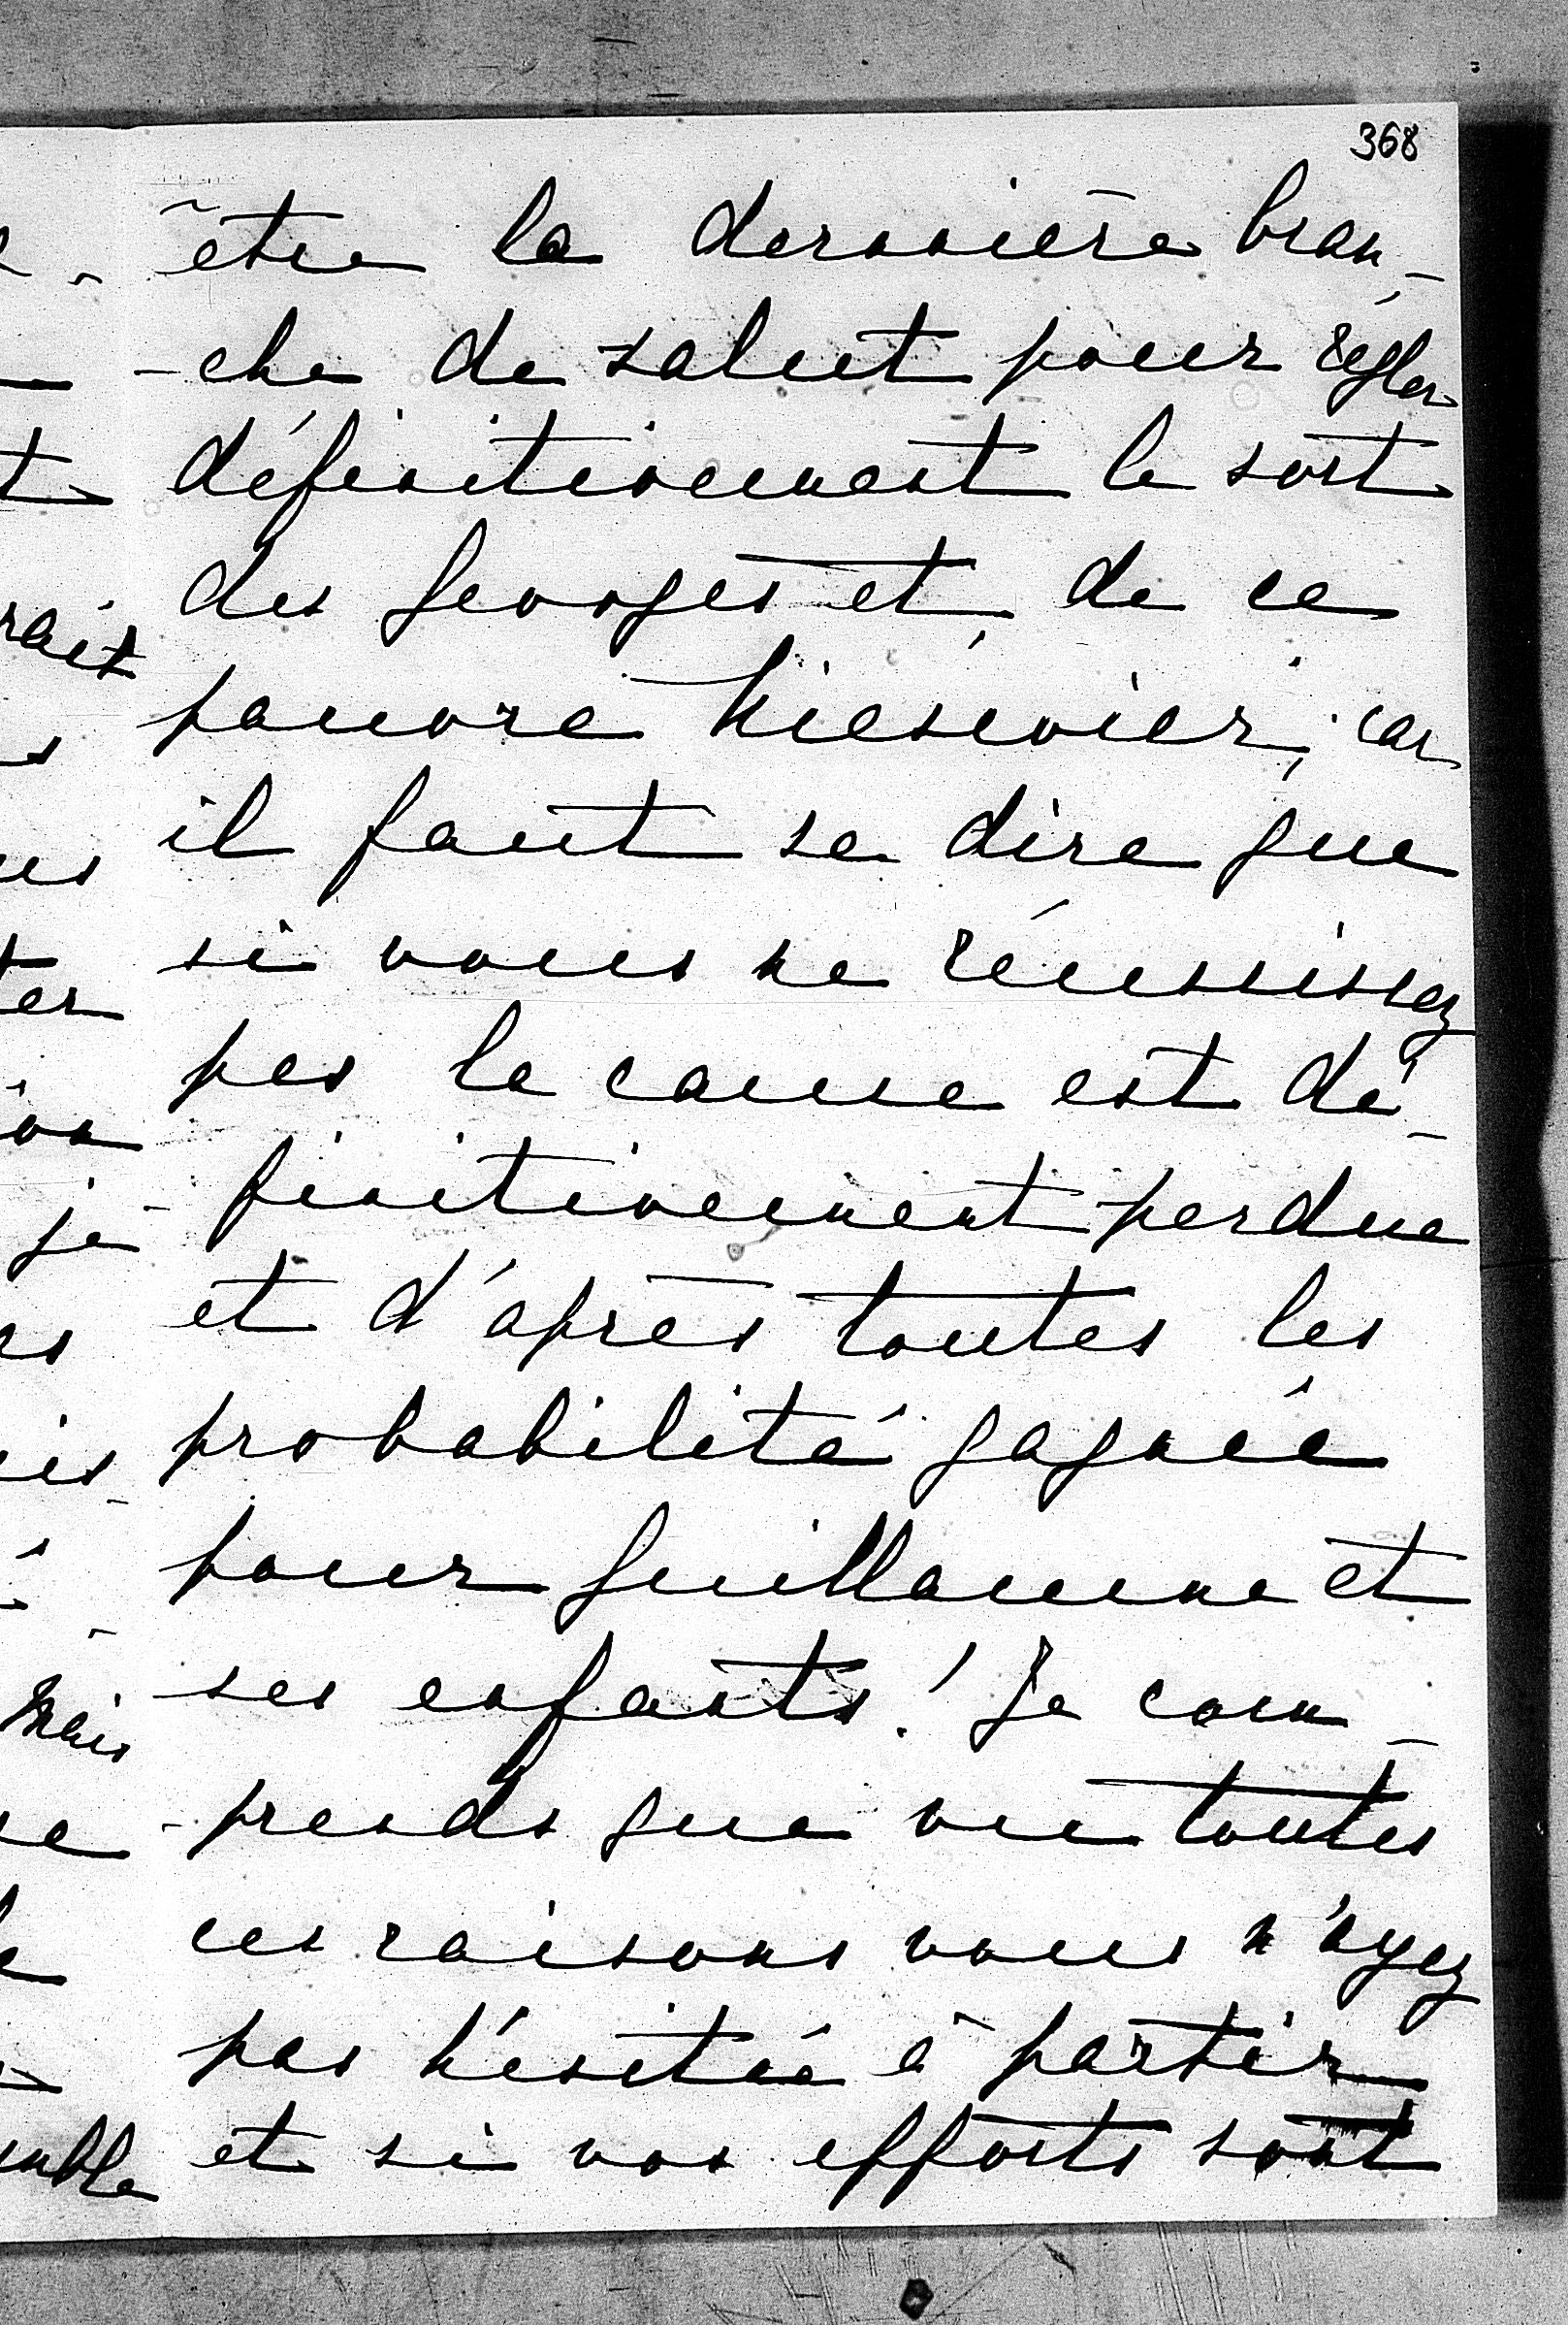 368
être la dernière bran-
-che de salut pour régler
définitivement le sort
des Georges et de ce
pauvre Kiesevier, car
il faut se dire que
si vous ne réussissez
pas la cause est dé-
finitivement perdue
et d'après toutes les
probabilité gagnée
pour Guillaume et
ses enfants! Je com-
-prends que vu toutes
ces raisons vous n'ayez
pas hésité à partir
et si vos efforts sont